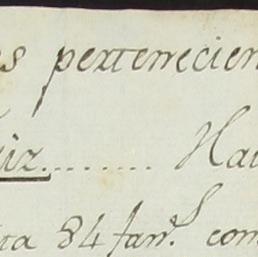 os pertenecien
uz........ Hai
ta 84 fan.s con